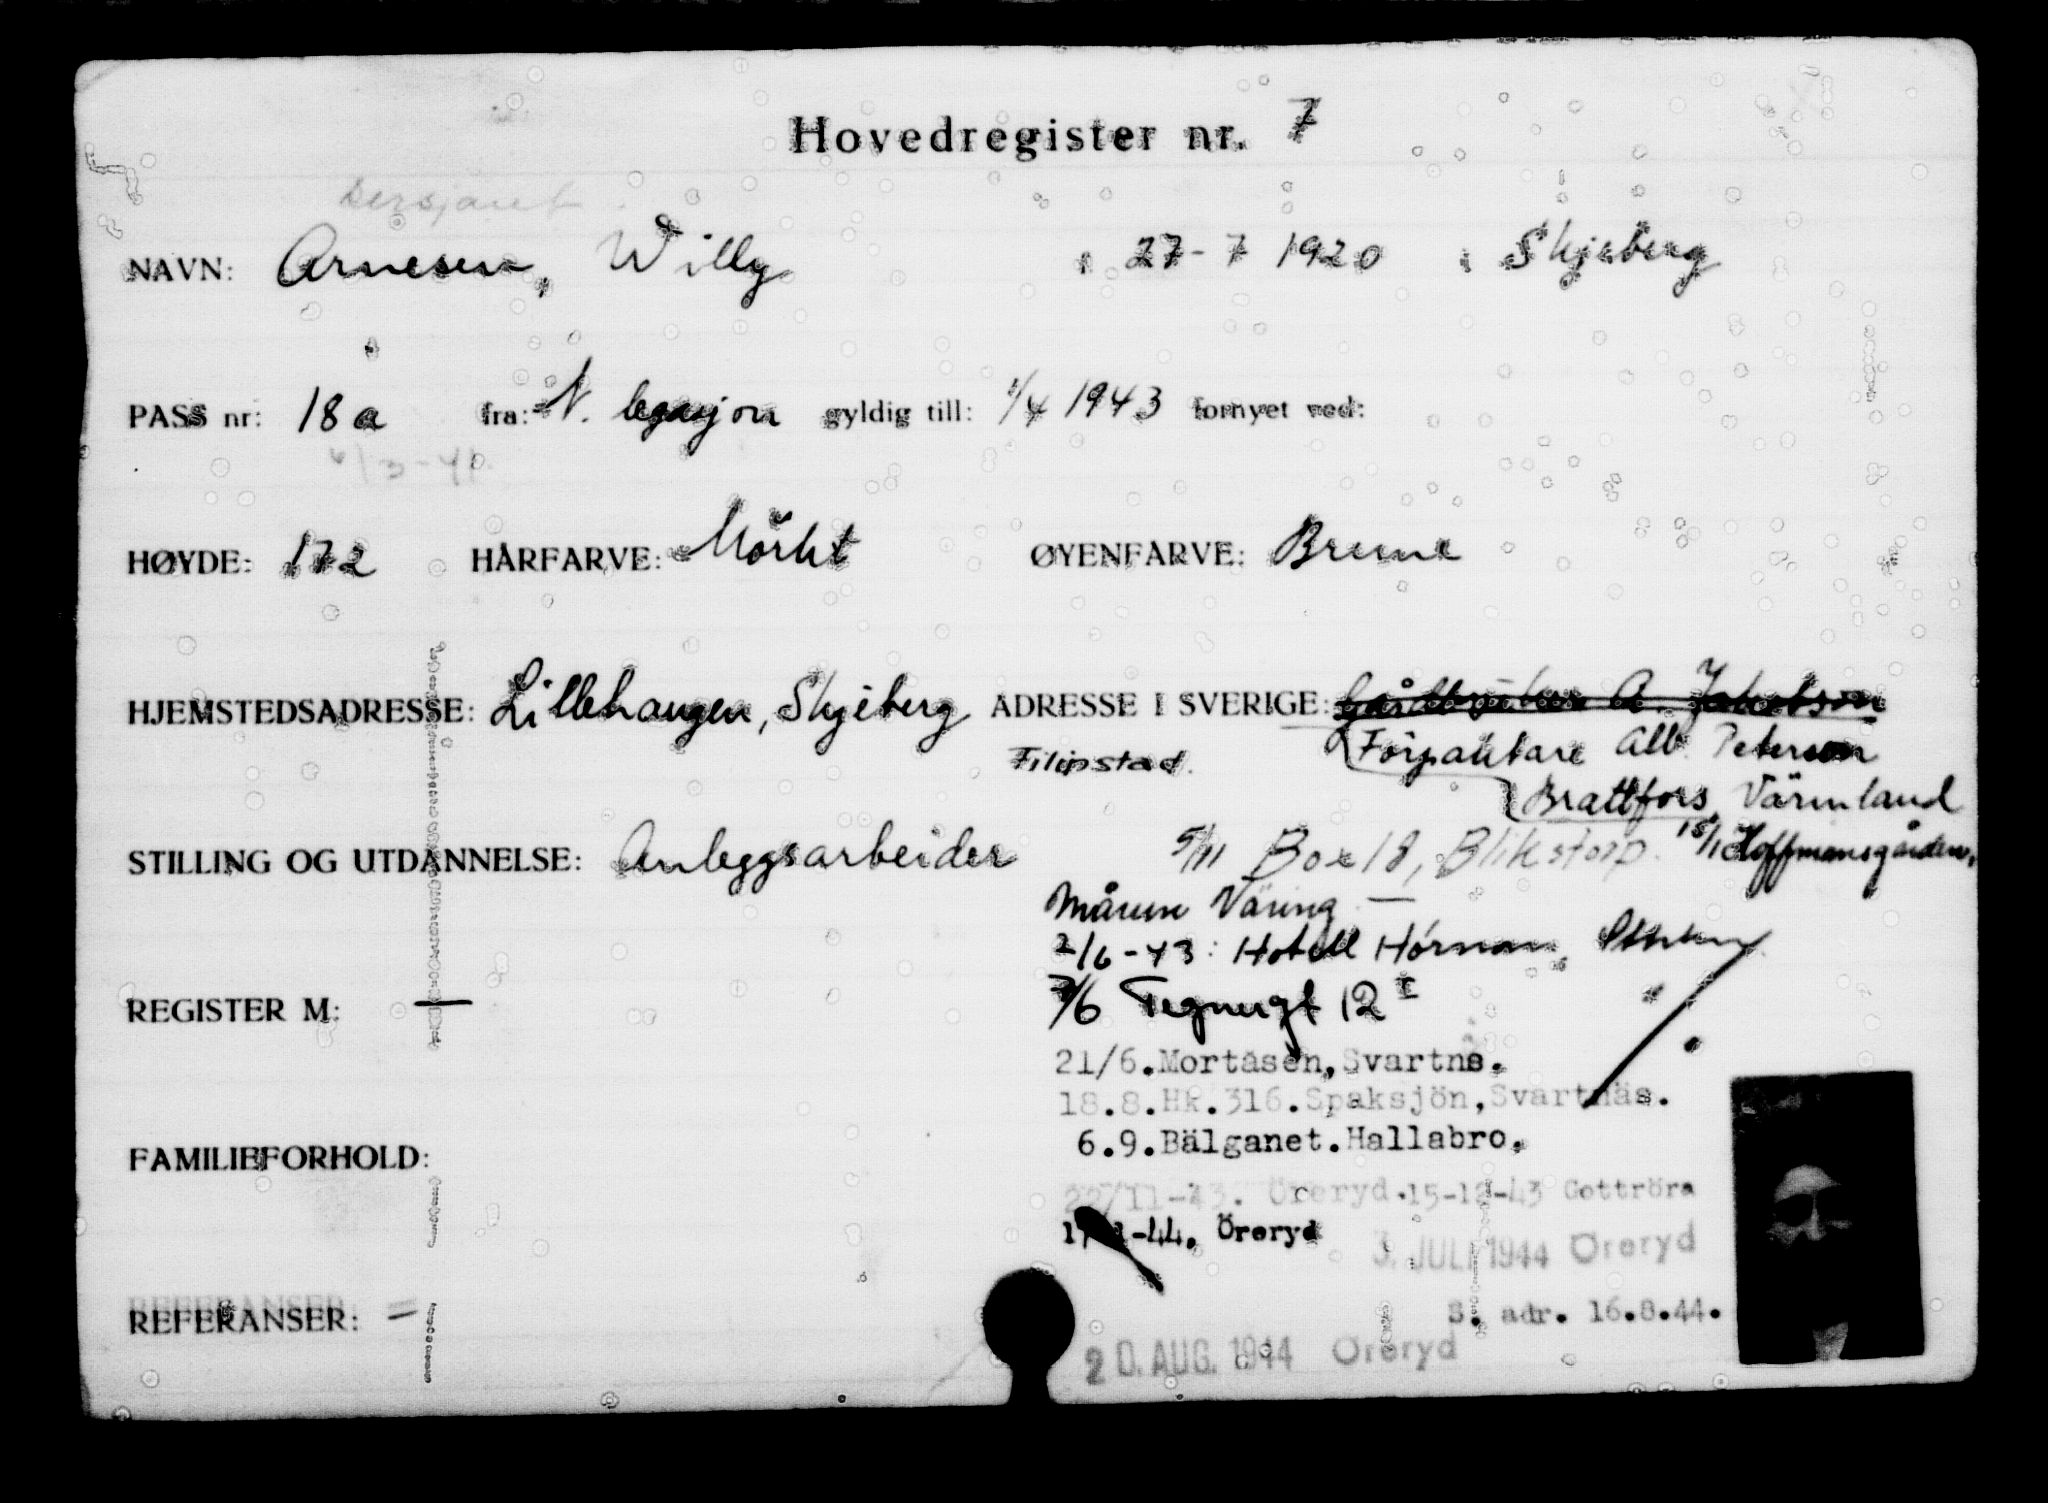 Hovedregister nr. 7
sersjant
NAVN: Arnesen, Willy 27-7 1920 i Skjeberg
PASS nr: 18a fra: N. legasjon gyldig till: 1/4 1943 fornyet ved:
6/3-41.
HØYDE: 172 HÅRFARVE: Mörkt ØYENFARVE: Brune
HJEMSTEDSADRESSE: Lillehaugen, Skjeberg ADRESSE I SVERIGE: A. Jakobson
Filipstad. Förpaktare Alb. Peterson
Brattfors, Värmland
STILLING OG UTDANNELSE: Anleggsarbeider 5/11 Box 18, Blikstorp. Hoffmansgården,
Väring
2/6-43: Hotell Hörnan,
REGISTER M: — 7/6 Tegnergt 12 I "
21/6. Mortåsen, Svartnä.
18.8. HR. 316. Spaksjön, Svartnäs.
FAMILIEFORHOLD: 6.9. Bälganet. Hallabro.
22/11-43. Öreryd. 15-12-43 Gottröra
-44. Öreryd
3. JULI 1944 Öreryd
REFERANSER: = S. adr. 16.8.44.
20. AUG. 1944 Öreryd